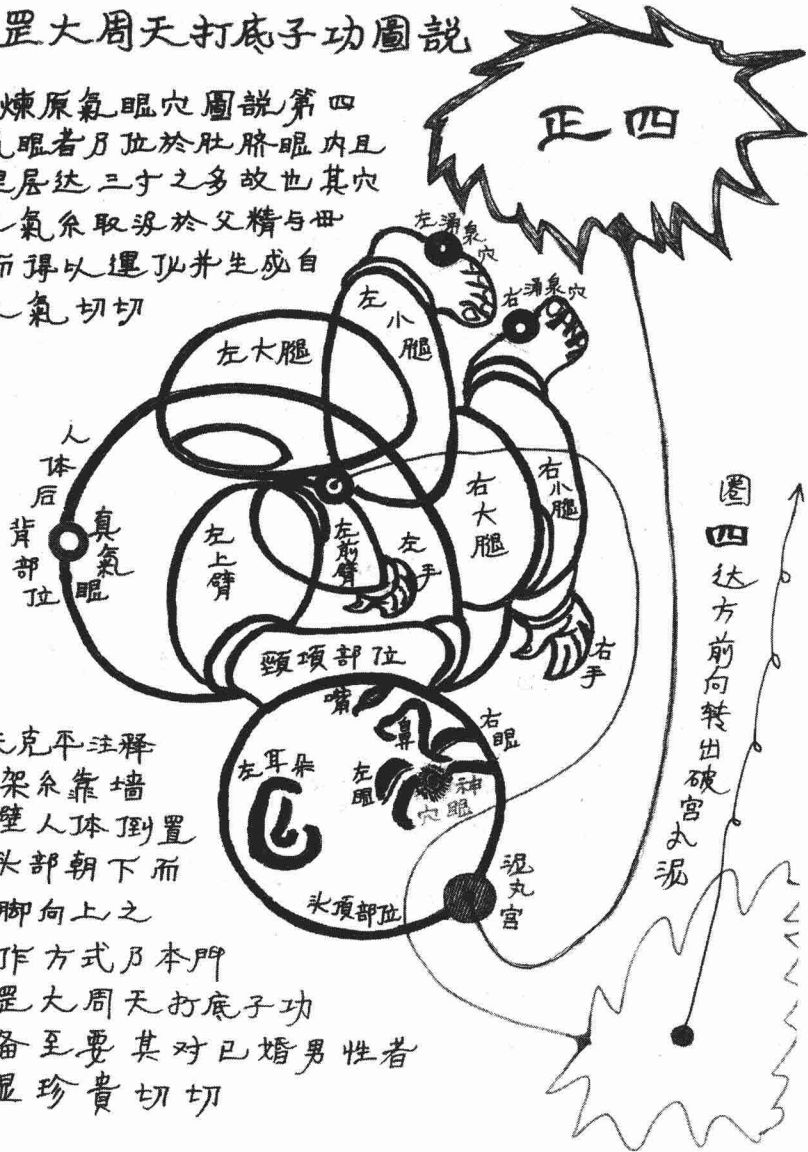 罡大周天打底子功圖説
煉原氣眼穴圖説第四
眼者乃位於肚脐眼内且
层达三寸之多故也其穴
氣系取汲於父精与毌
而得以運化并生成自
氣切切
正四
左涌泉穴
右涌泉穴
左小腿
左大腿
右小腿
右大腿
人体后背部位
真氣眼
左上臂
左前臂
左手
右手
頸項部位
嘴
鼻
右眼
左眼
左耳朵
神眼穴
头頂部位
泥丸宫
圈四达方前向转出破宫丸泥
克平注释
架系靠墙
壁人体倒置
头部朝下而
脚向上之
作方式乃本門
罡大周天打底子功
备至要其对已婚男性者
显珍貴切切